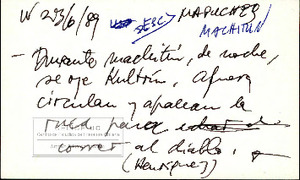 W 233/6/89 ESC/ MAPUCHES
MACHITUN
- Durante machitún, de noche,
se oye Kultrún. Afuera
circulan y apalean la
ruca para echar a
correr al diablo.
(Henríquez)